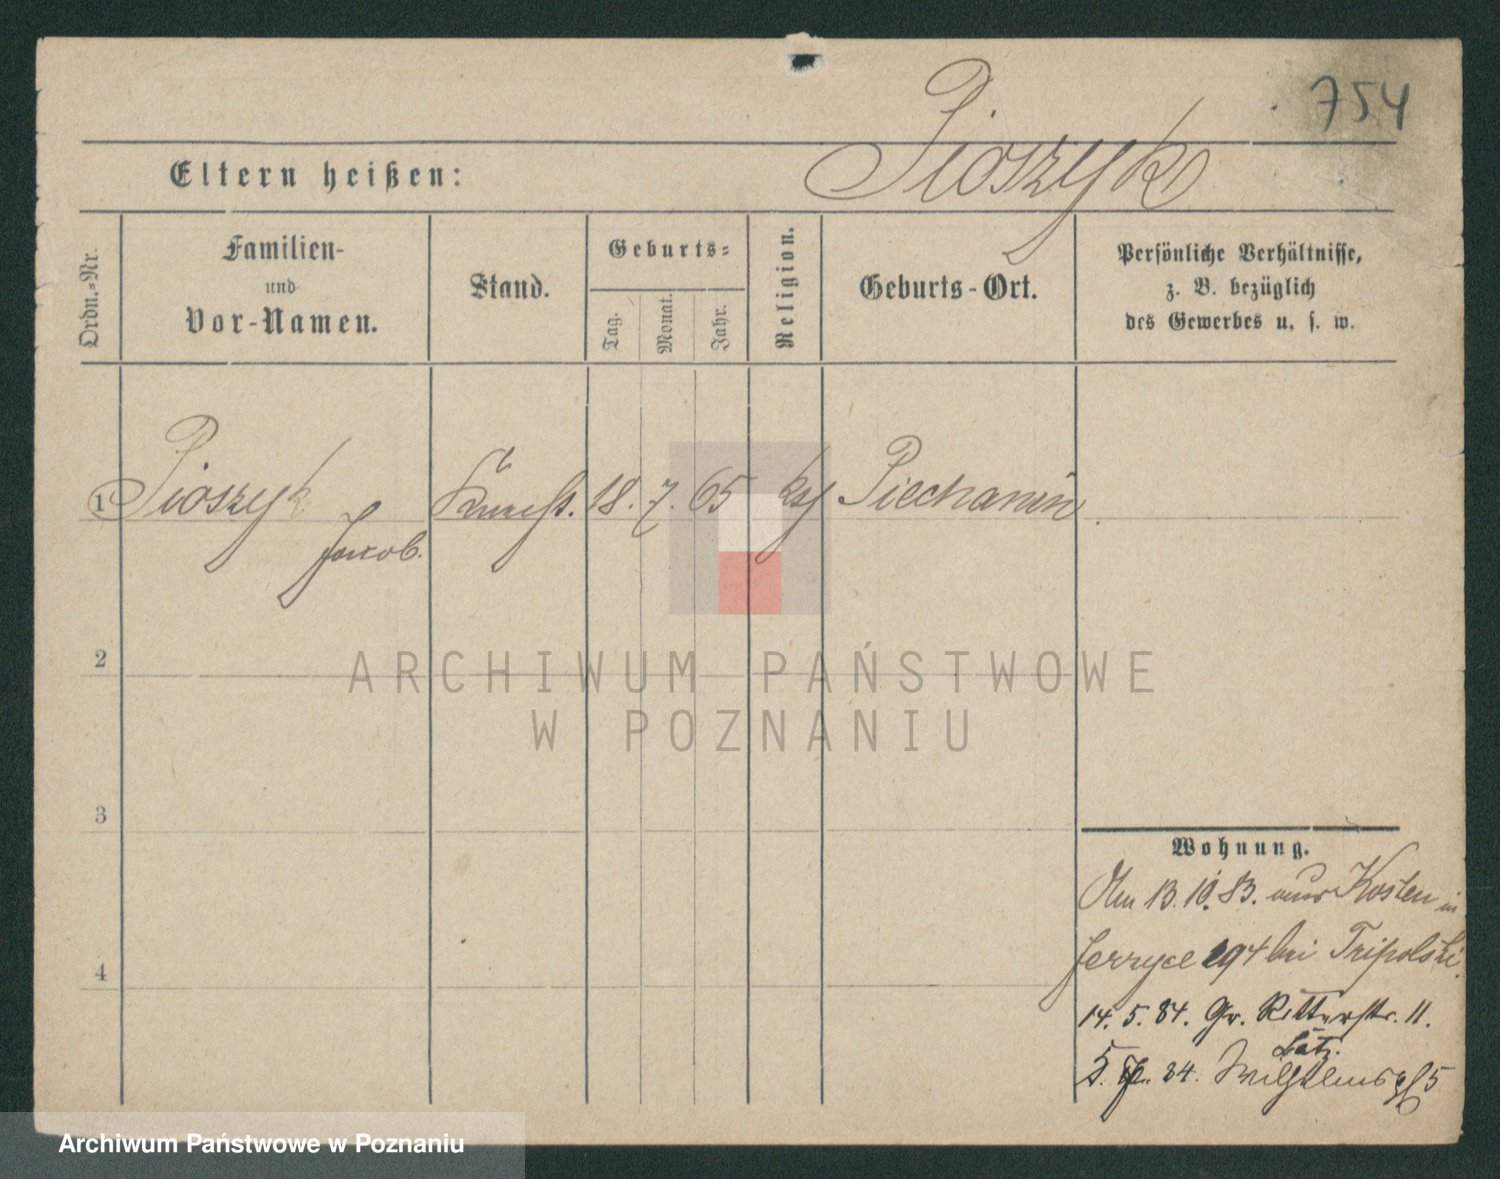 754
Pioszyk
Eltern heißen:
Ordn.-Nr.
Familien-
und
Vor-Namen.
Stand.
Geburts-
Tag.
Monat.
Jahr.
Religion.
Geburts-Ort.
Persönliche Verhältnisse,
z. B. bezüglich
des Gewerbes u. s. w.
1 Pioszyk Knecht. 18. 7. 65 Piechanin
Jacob.
2
ARCHIWUM PAŃSTWOWE
W POZNANIU
3
4
Wohnung.
Am 13.10.83. aus Kosten in
Jerzyce 194 bei Tripolski.
14. 5. 84. Gr. Ritterstr. 11.
Wilhelmspl 5
Archiwum Państwowe w Poznaniu